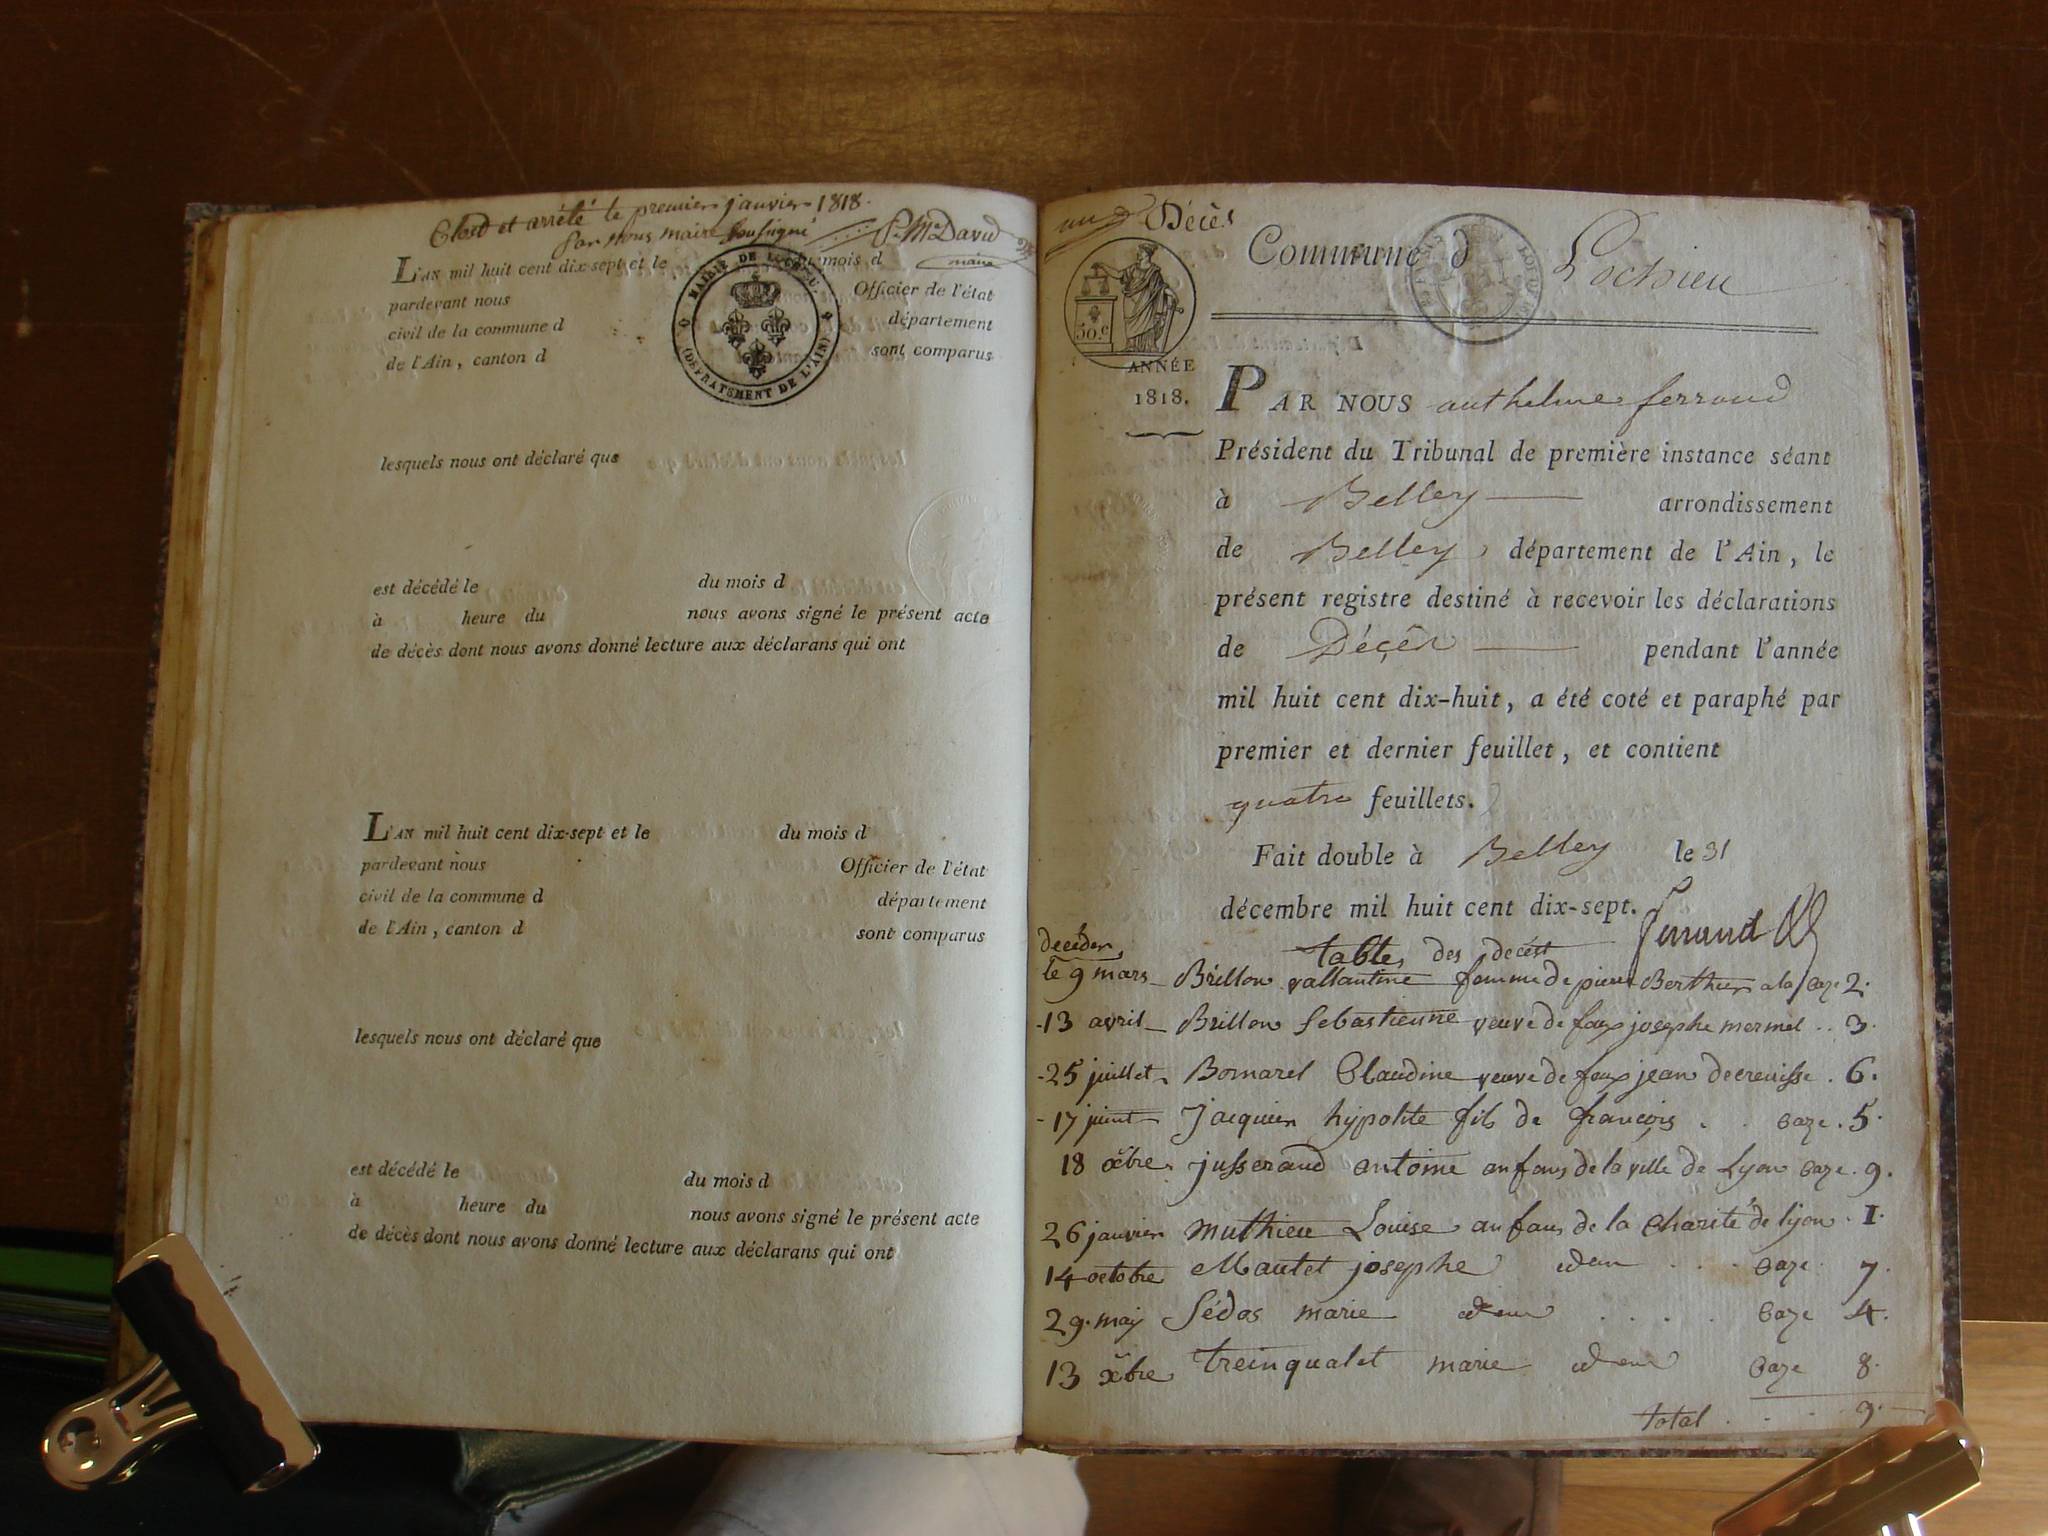 Clos et arrêté le premier janvier 1818.
par nous maire soussigné
P. Me David
maire
L'AN mil huit cent dix-sept et le du mois d
pardevant nous Officier de l'état
civil de la commune d département
de l'Ain, canton d sont comparus
MAIRIE DE
(DEPRATEMENT DE L'AIN)
lesquels nous ont déclaré que
est décédé le du mois d
à heure du nous avons signé le présent acte
de décès dont nous avons donné lecture aux déclarans qui ont
L'AN mil huit cent dix-sept et le du mois d
pardevant nous Officier de l'état
civil de la commune d département
de l'Ain, canton d sont comparus
lesquels nous ont déclaré que
est décédé le du mois d
à heure du nous avons signé le présent acte
de décès dont nous avons donné lecture aux déclarans qui ont
un Décès
Commune d Lochieu
50.c
ANNÉE
1818.
PAR NOUS anthelme ferrand
Président du Tribunal de première instance séant
à Belley arrondissement
de Belley, département de l'Ain, le
présent registre destiné à recevoir les déclarations
de Décès pendant l'année
mil huit cent dix-huit, a été coté et paraphé par
premier et dernier feuillet, et contient
quatre feuillets.
Fait double à Belley le 31
décembre mil huit cent dix-sept.
Ferrand
table des decest
le 9 mars Brillon vallantine femme de pierre Berthier a la 2.
13 avril Brillon Sebastienne veuve de feux josephe mermet .. 3.
25 juillet Bornarel Claudine veuve de feux jean decrevisse . 6.
17 juint Jacquier hypolite fils de françois . . 5.
18 xbre jusserand antoine anfans de la ville de Lyon 9.
26 janvier Muthieu Louise anfans de la Charité de lyon . I.
14 octobre Mautet josephe idem . . . 7.
29. may Sédos marie idem . . . . 4.
13 xbre treinqualet marie idem 8.
total . . . 9.